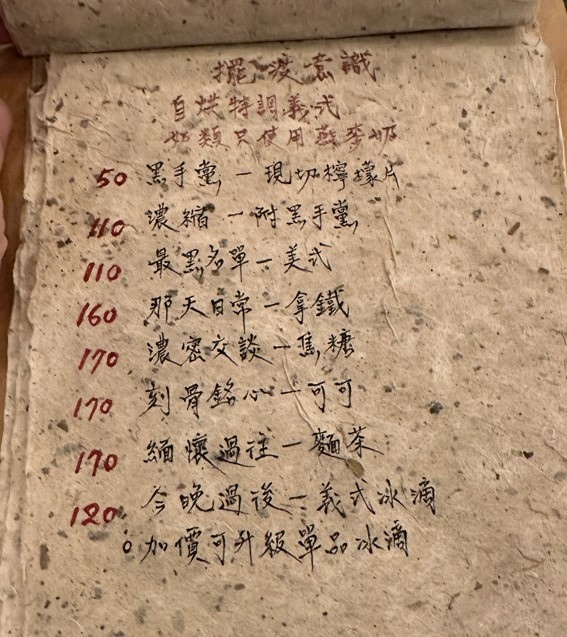 擺渡意識
自烘特調義式
奶類只使用燕麥奶
50 黑手黨－現切檸檬片
110 濃縮－附黑手黨
110 最黑名單－美式
160 那天日常－拿鐵
170 濃密交談－焦糖
170 刻骨銘心－可可
170 緬懷過往－麵茶
120 今晚過後－義式冰滴
。加價可升級單品冰滴